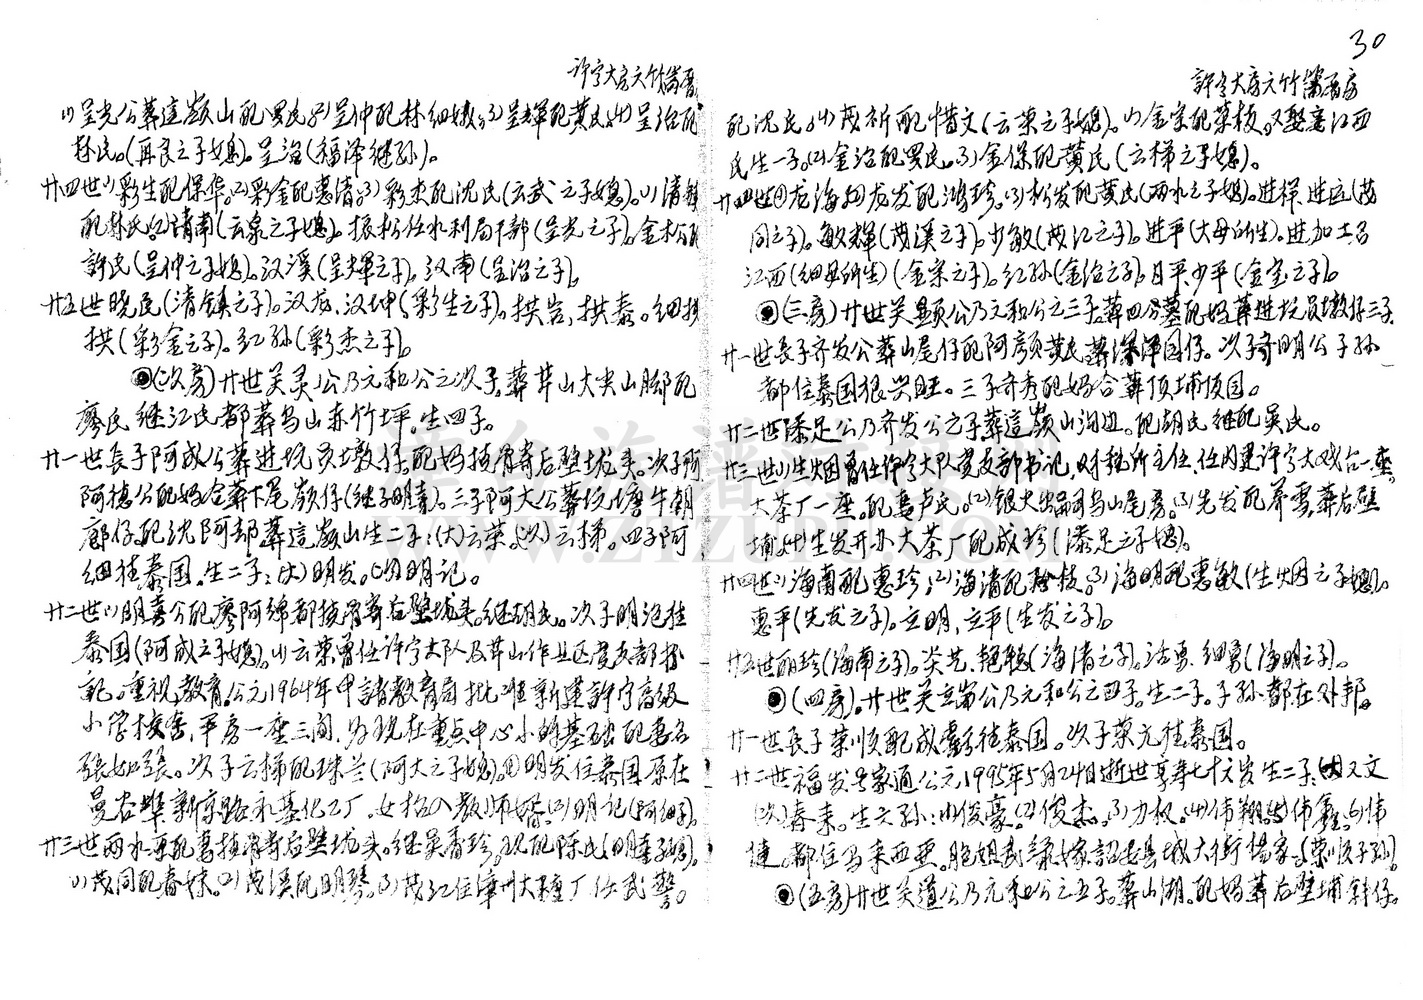 30
許宁大房六竹
⑴呈光公葬這嶺山配罗氏⑵呈仲配林细嫩⑶呈辉配黄氏⑷呈治配
林氏。(再良之子媳)。呈治(福泽继孙)。
廿四世⑴彩生配保华。⑵彩金配惠清⑶彩杰配沈氏(云武之子媳)。⑴清
配林氏⑵清南(云泉之子媳)。振松任水利局干部(呈光之子)。金松配
許氏(呈仲之子媳)。汉溪(呈辉之子)。汉南(呈治之子)。
廿五世晓民(清镇之子)。汉龙,汉坤(彩生之子)。拱岩,拱泰。细拱
拱(彩金之子)。红孙(彩杰之子)。
(次房)廿世关灵公乃元和公之次子。葬井山大尖山脚配
廖氏继江氏都葬乌山赤竹坪。生四子。
廿一世長子阿成公葬进坑员墩仔。配妈 后壁垅头。次子阿
阿穗公配妈合葬下尾嶺仔(继子明 )。三子阿大公葬坟塘牛朝
廊仔配沈阿却葬這嶺山生二子:(大)云荣。(次)云梯。四子阿
细往泰国。生二子:(大)明发。(次)明记。
廿二世⑴明喜公配廖阿绵都 后壁垅头继胡氏。次子明泡往
泰国(阿成之子媳)。⑴云荣曾任许宁大队及井山作业区党支部书
記。重视教育。公元1964年申請教育局批准新建許宁高级
小学校舍,平房一座三间,为现在重点中心小的基础配妻名
張如張。次子云梯配珠兰(阿大之子媳)。①明发住泰国原在
曼谷埠新京路永基化工厂,女 教师 。⑵明记(阿细子)。
廿三世两水再配 后壁垅头。继吴香珍。现配陈氏(明喜子媳)。
⑴茂同配春妹。⑵茂溪配明琴。⑶茂江住漳州大糖厂任武警。
許宁大房六竹
配沈氏。⑷茂祈配惜文(云荣之子媳)。⑴金宗配菜枝。又娶妾江西
氏生一子。⑵金治配罗氏。⑶金保配黄氏(云梯之子媳)。
廿四世①龙海⑵龙发配鸿珍。⑶松发配黄氏(两水之子媳)。进祥 进应(茂
同之子)。敏辉(茂溪之子)。少敏(茂江之子)。进平(大母所生)。进加土名
江西(细母所生)(金宗之子)。红孙(金治之子)。日平,少平(金宝之子)。
(三房)廿世关題公乃元和公之三子。葬四公墓配妈葬进坑员墩仔三子。
廿一世長子齐发公葬山尾仔配阿 黄氏葬深泽园仔。次子齐明公子孙
都住泰国很兴旺。三子齐秀配妈合葬顶埔顶园。
廿二世添足公乃齐发公之子葬這嶺山沟边。配胡氏继配吴氏。
廿三世⑴生烟曾任许宁大队党支部书记,财税所主任,任内建许宁大戏台一座,
大茶厂一座。配妻卢氏。⑵银火出嗣乌山尾房。⑶先发配荞雪,葬后壁
埔。⑷生发开办大茶厂配成珍(添足之子媳)。
廿四世⑴海南配惠珍,⑵海清配 枝。⑶海明配惠敏(生烟之子媳)。
惠平(先发之子)。立明,立平(生发之子)。
廿五世丽珍(海南之子)。 艺,艳 (海清之子)。洁勇,细勇(海明之子)。
(四房)。廿世关 公乃元和公之四子。生二子。子孙都在外邦。
廿一世長子荣順配成 往泰国。次子荣元往泰国。
廿二世福发号家通公元,1995年5月24日逝世享寿七十六岁生二子:⑴又文
(次)春来。生六孙:⑴俊豪。⑵俊杰。⑶力权。⑷伟翔⑸伟鑫。⑹伟
健。都住马来西亚。胞姐 嫁詔安县城大街杨家。(荣順子孙)
(五房)廿世关道公乃元和公之五子。葬山湖。配妈葬后壁埔斜仔。